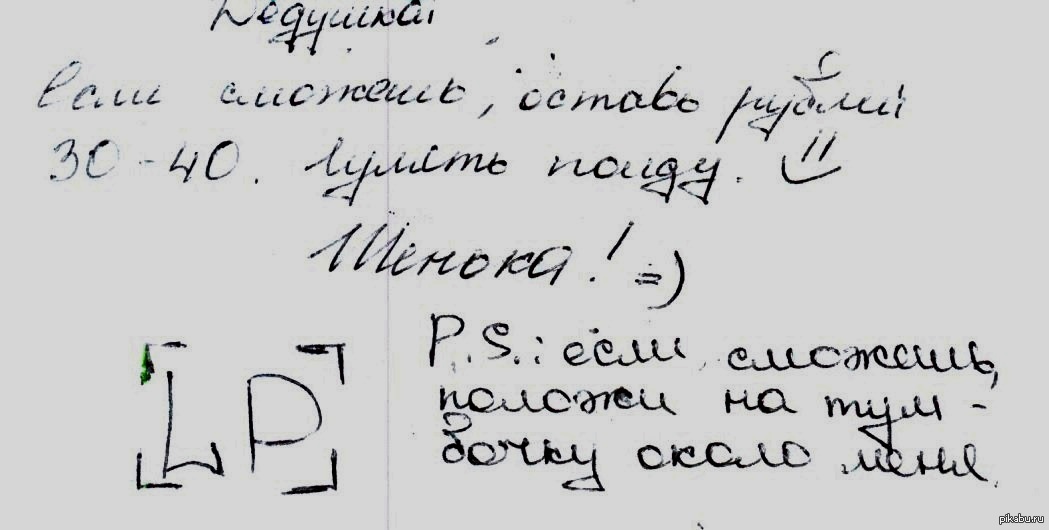 Дедушка!
Если сможешь, оставь рублей
30-40. Гулять пойду. =)
Шенока! =)
[LP]
P.S.: если сможешь,
положи на тум-
бочку около меня.
pikabu.ru